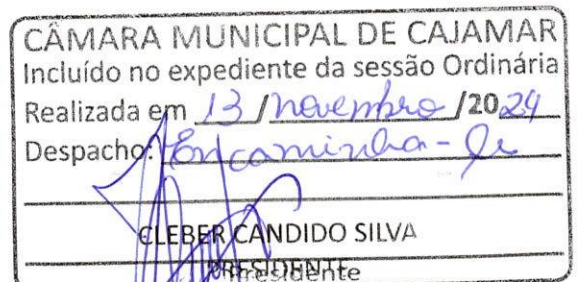 CÂMARA MUNICIPAL DE CAJAMAR
Incluído no expediente da sessão Ordinária
Realizada em 13 / novembro /2024
Despacho: Encaminha-se
CLEBER CANDIDO SILVA
PRESIDENTE
Presidente